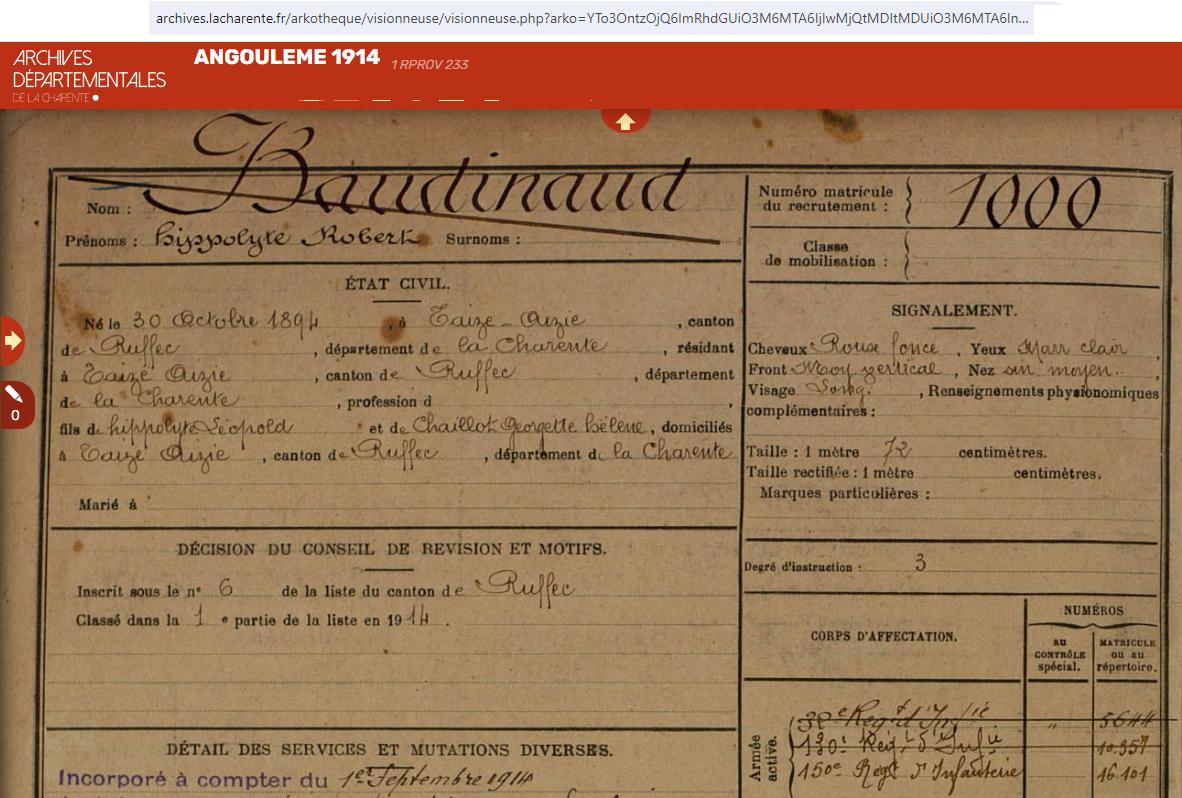 archives.lacharente.fr/arkotheque/visionneuse/visionneuse.php?arko=YTo3OntzOjQ6ImRhdGUiO3M6MTA6IjIwMjQtMDItMDUiO3M6MTA6In...
ARCHIVES
DÉPARTEMENTALES
DE LA CHARENTE
ANGOULEME 1914 1 RPROV 233
0
Nom : Baudinaud
Prénoms : hippolyte Robert Surnoms :
ÉTAT CIVIL.
Né le 30 Octobre 1894, à Taizé-Aizie, canton
de Ruffec, département de la Charente, résidant
à Taizé Aizie, canton de Ruffec, département
de la Charente, profession d ,
fils de hippolyte Léopold et de Chaillot Georgette hélène, domiciliés
à Taizé Aizie, canton de Ruffec, département de la Charente
Marié à
DÉCISION DU CONSEIL DE REVISION ET MOTIFS.
Inscrit sous le n° 6 de la liste du canton de Ruffec
Classé dans la 1 e partie de la liste en 1914.
DÉTAIL DES SERVICES ET MUTATIONS DIVERSES.
Incorporé à compter du 1er Septembre 1914
Numéro matricule
du recrutement : 1000
Classe
de mobilisation :
SIGNALEMENT.
Cheveux Roux foncé, Yeux Marr clair,
Front Moy vertical, Nez moyen.,
Visage Long., Renseignements physionomiques
complémentaires :
Taille : 1 mètre 72 centimètres.
Taille rectifiée : 1 mètre centimètres.
Marques particulières :
Degré d'instruction : 3
CORPS D'AFFECTATION.
NUMÉROS
AU
CONTRÔLE
spécial.
MATRICULE
ou au
répertoire.
Armée
active.
Regt d'Infie " 5644
Regt d'Infie 10.957
150e Regt d'Infanterie 16.101